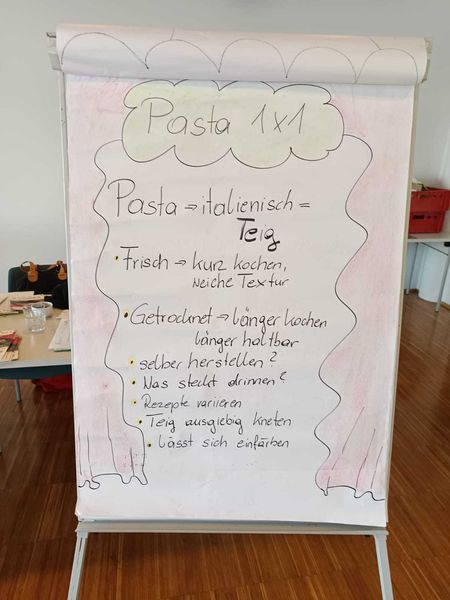 Pasta 1x1
Pasta ⇒ italienisch =
Teig
• Frisch ⇒ kurz kochen,
weiche Textur
• Getrocknet ⇒ länger kochen
länger haltbar
• selber herstellen?
• Was steckt drinnen?
• Rezepte variieren
• Teig ausgiebig kneten
• Lässt sich einfärben